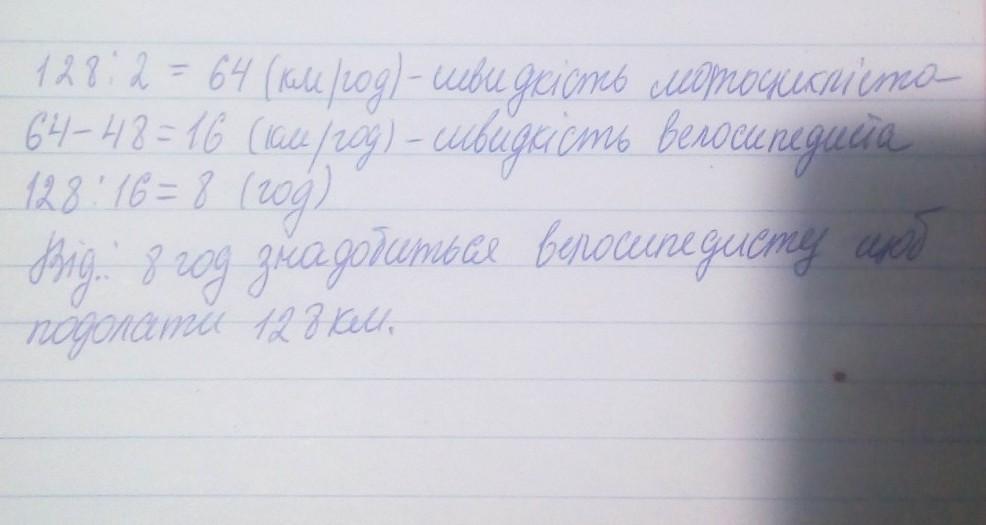 128:2 = 64 (км/год) - швидкість мотоцикліста
64-48=16 (км/год) - швидкість велосипедиста
128:16=8 (год)
Від.: 8 год знадобиться велосипедисту щоб
подолати 128км.